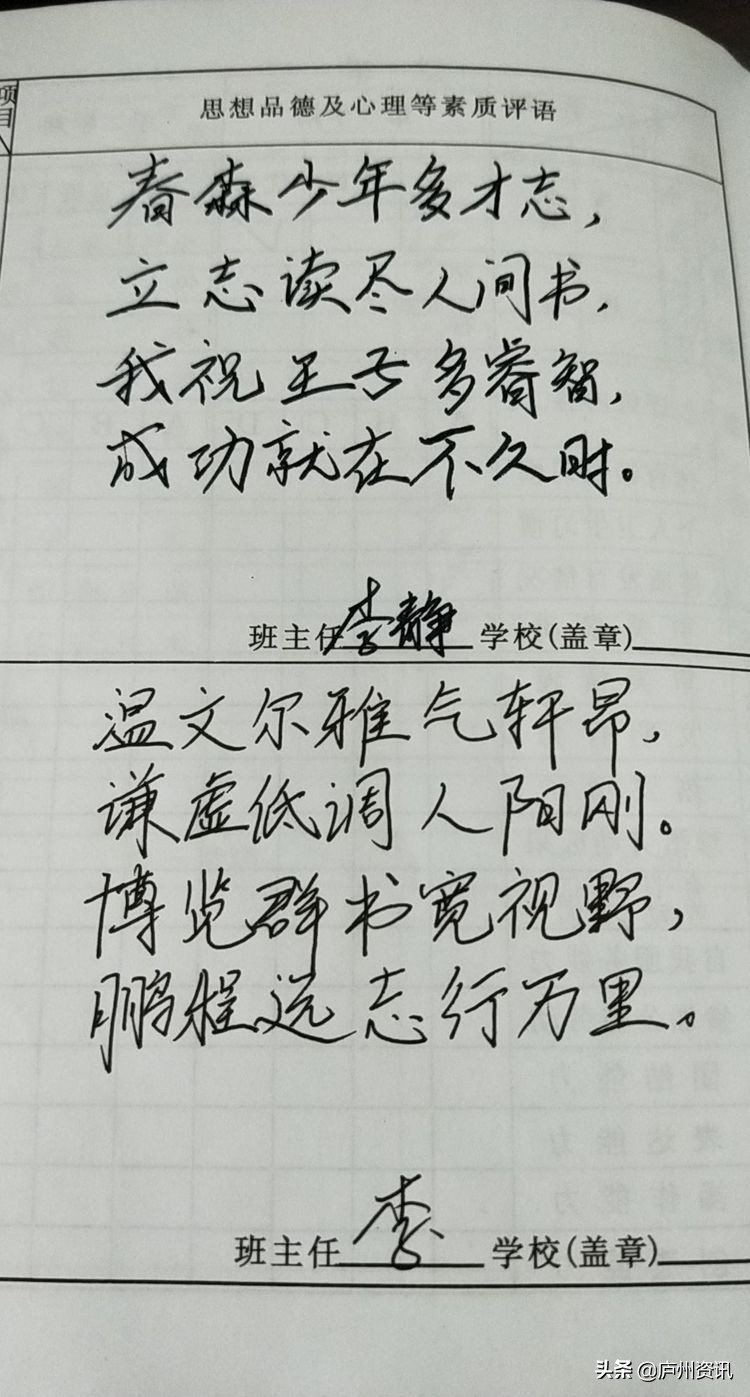 项目
思想品德及心理等素质评语
春森少年多才志,
立志读尽人间书,
我祝王子多睿智,
成功就在不久时。
班主任李静 学校(盖章)
温文尔雅气轩昂,
谦虚低调人阳刚。
博览群书宽视野,
鹏程远志行万里。
班主任李 学校(盖章)
头条 @庐州资讯